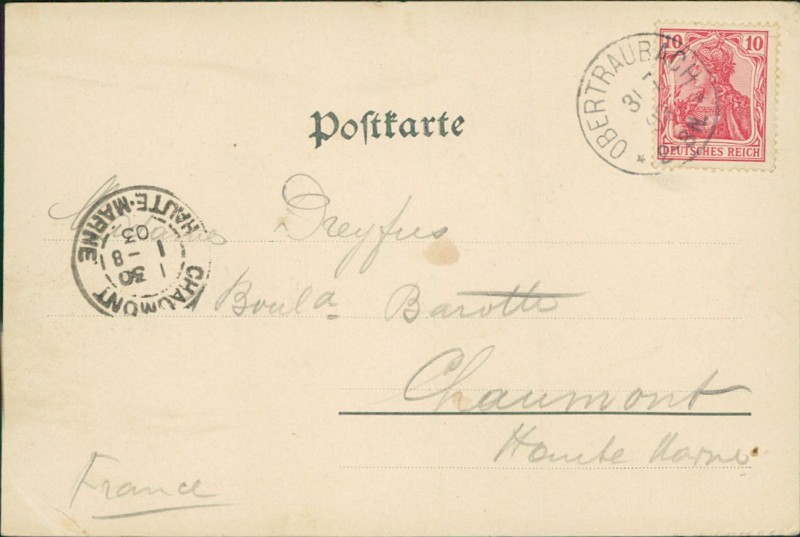 10 10
DEUTSCHES REICH
OBERTRAUBACH
31
Postkarte
Dreyfus
Boul.d Barotte
Chaumont
Haute Marne
France
CHAUMONT
HAUTE-MARNE
1 30
8 - 1
03